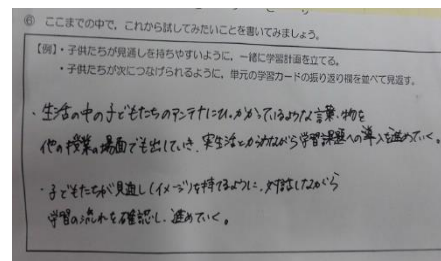 ⑥ ここまでの中で、これから試してみたいことを書いてみましょう。
【例】・子供たちが見通しを持ちやすいように、一緒に学習計画を立てる。
・子供たちが次につなげられるように、単元の学習カードの振り返り欄を並べて見返す。
・生活の中の子どもたちのアンテナにひっかかっているような言葉、物を
他の授業の場面でも出していき、実生活とからめながら学習課題への導入を進めていく。
・子どもたちが見通し(イメージ)を持てるように、対話しながら
学習の流れを確認し、進めていく。